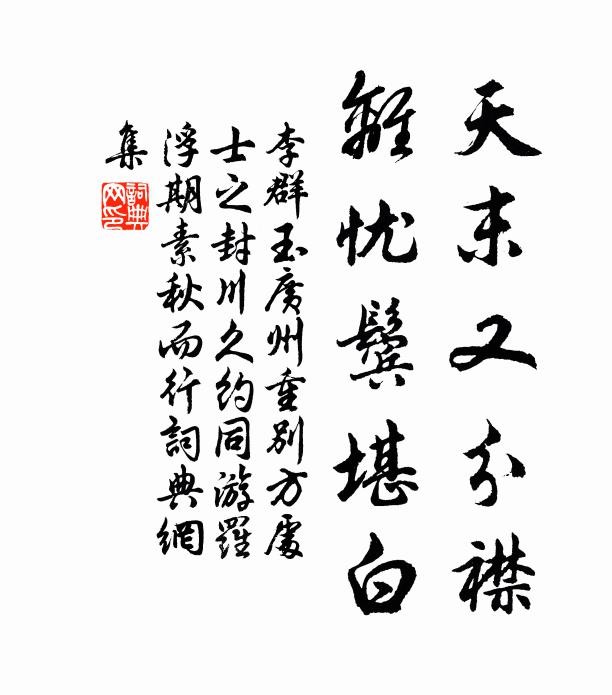 天末又分襟
離忧鬓堪白
李群玉廣州重别方處
士之封川久约同游羅
浮期素秋而行詞典網
集
詞典
网印